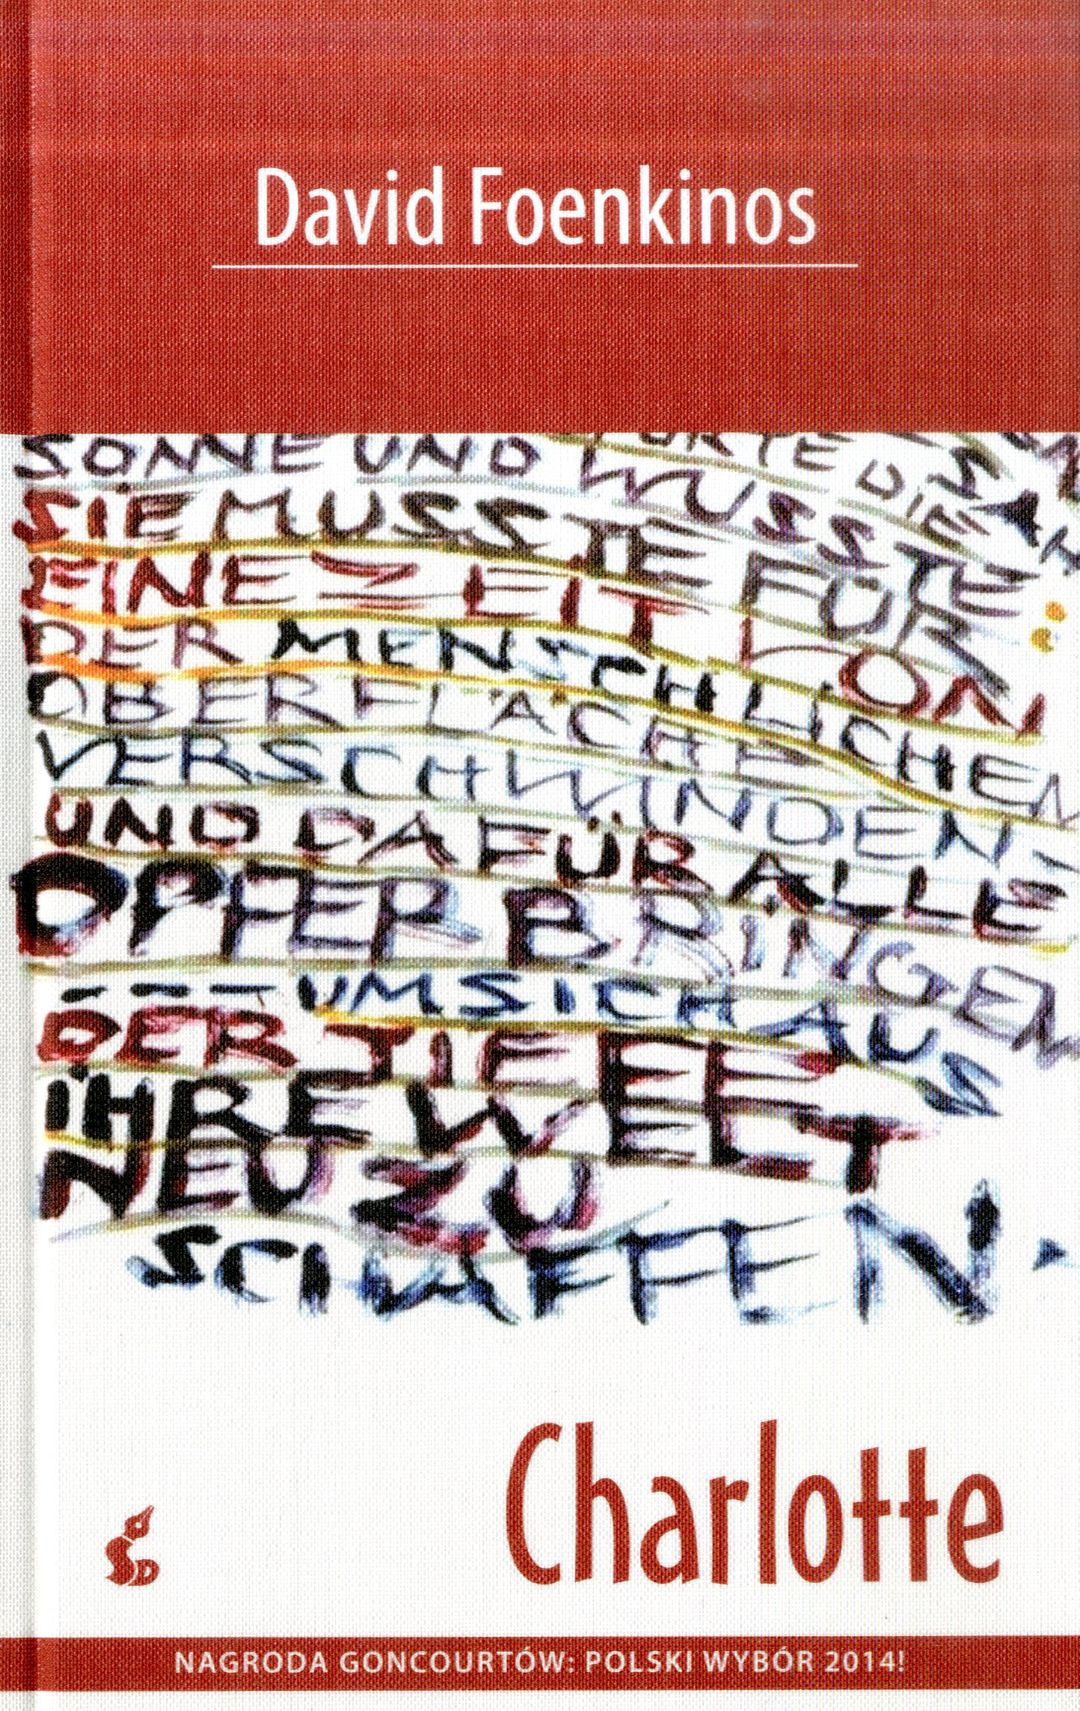 David Foenkinos
SONNE UND
WUSSTE :
SIE MUSSTE FÜR
EINE ZEIT VON
DER MENSCHLICHEN
OBERFLÄCHE
VERSCHWINDEN-
UND DAFÜR ALLE
OPFER BRINGEN
--- UM SICH AUS
DER TIEFE
IHRE WELT
NEU ZU
SCHAFFEN.
SD
Charlotte
NAGRODA GONCOURTÓW: POLSKI WYBÓR 2014!